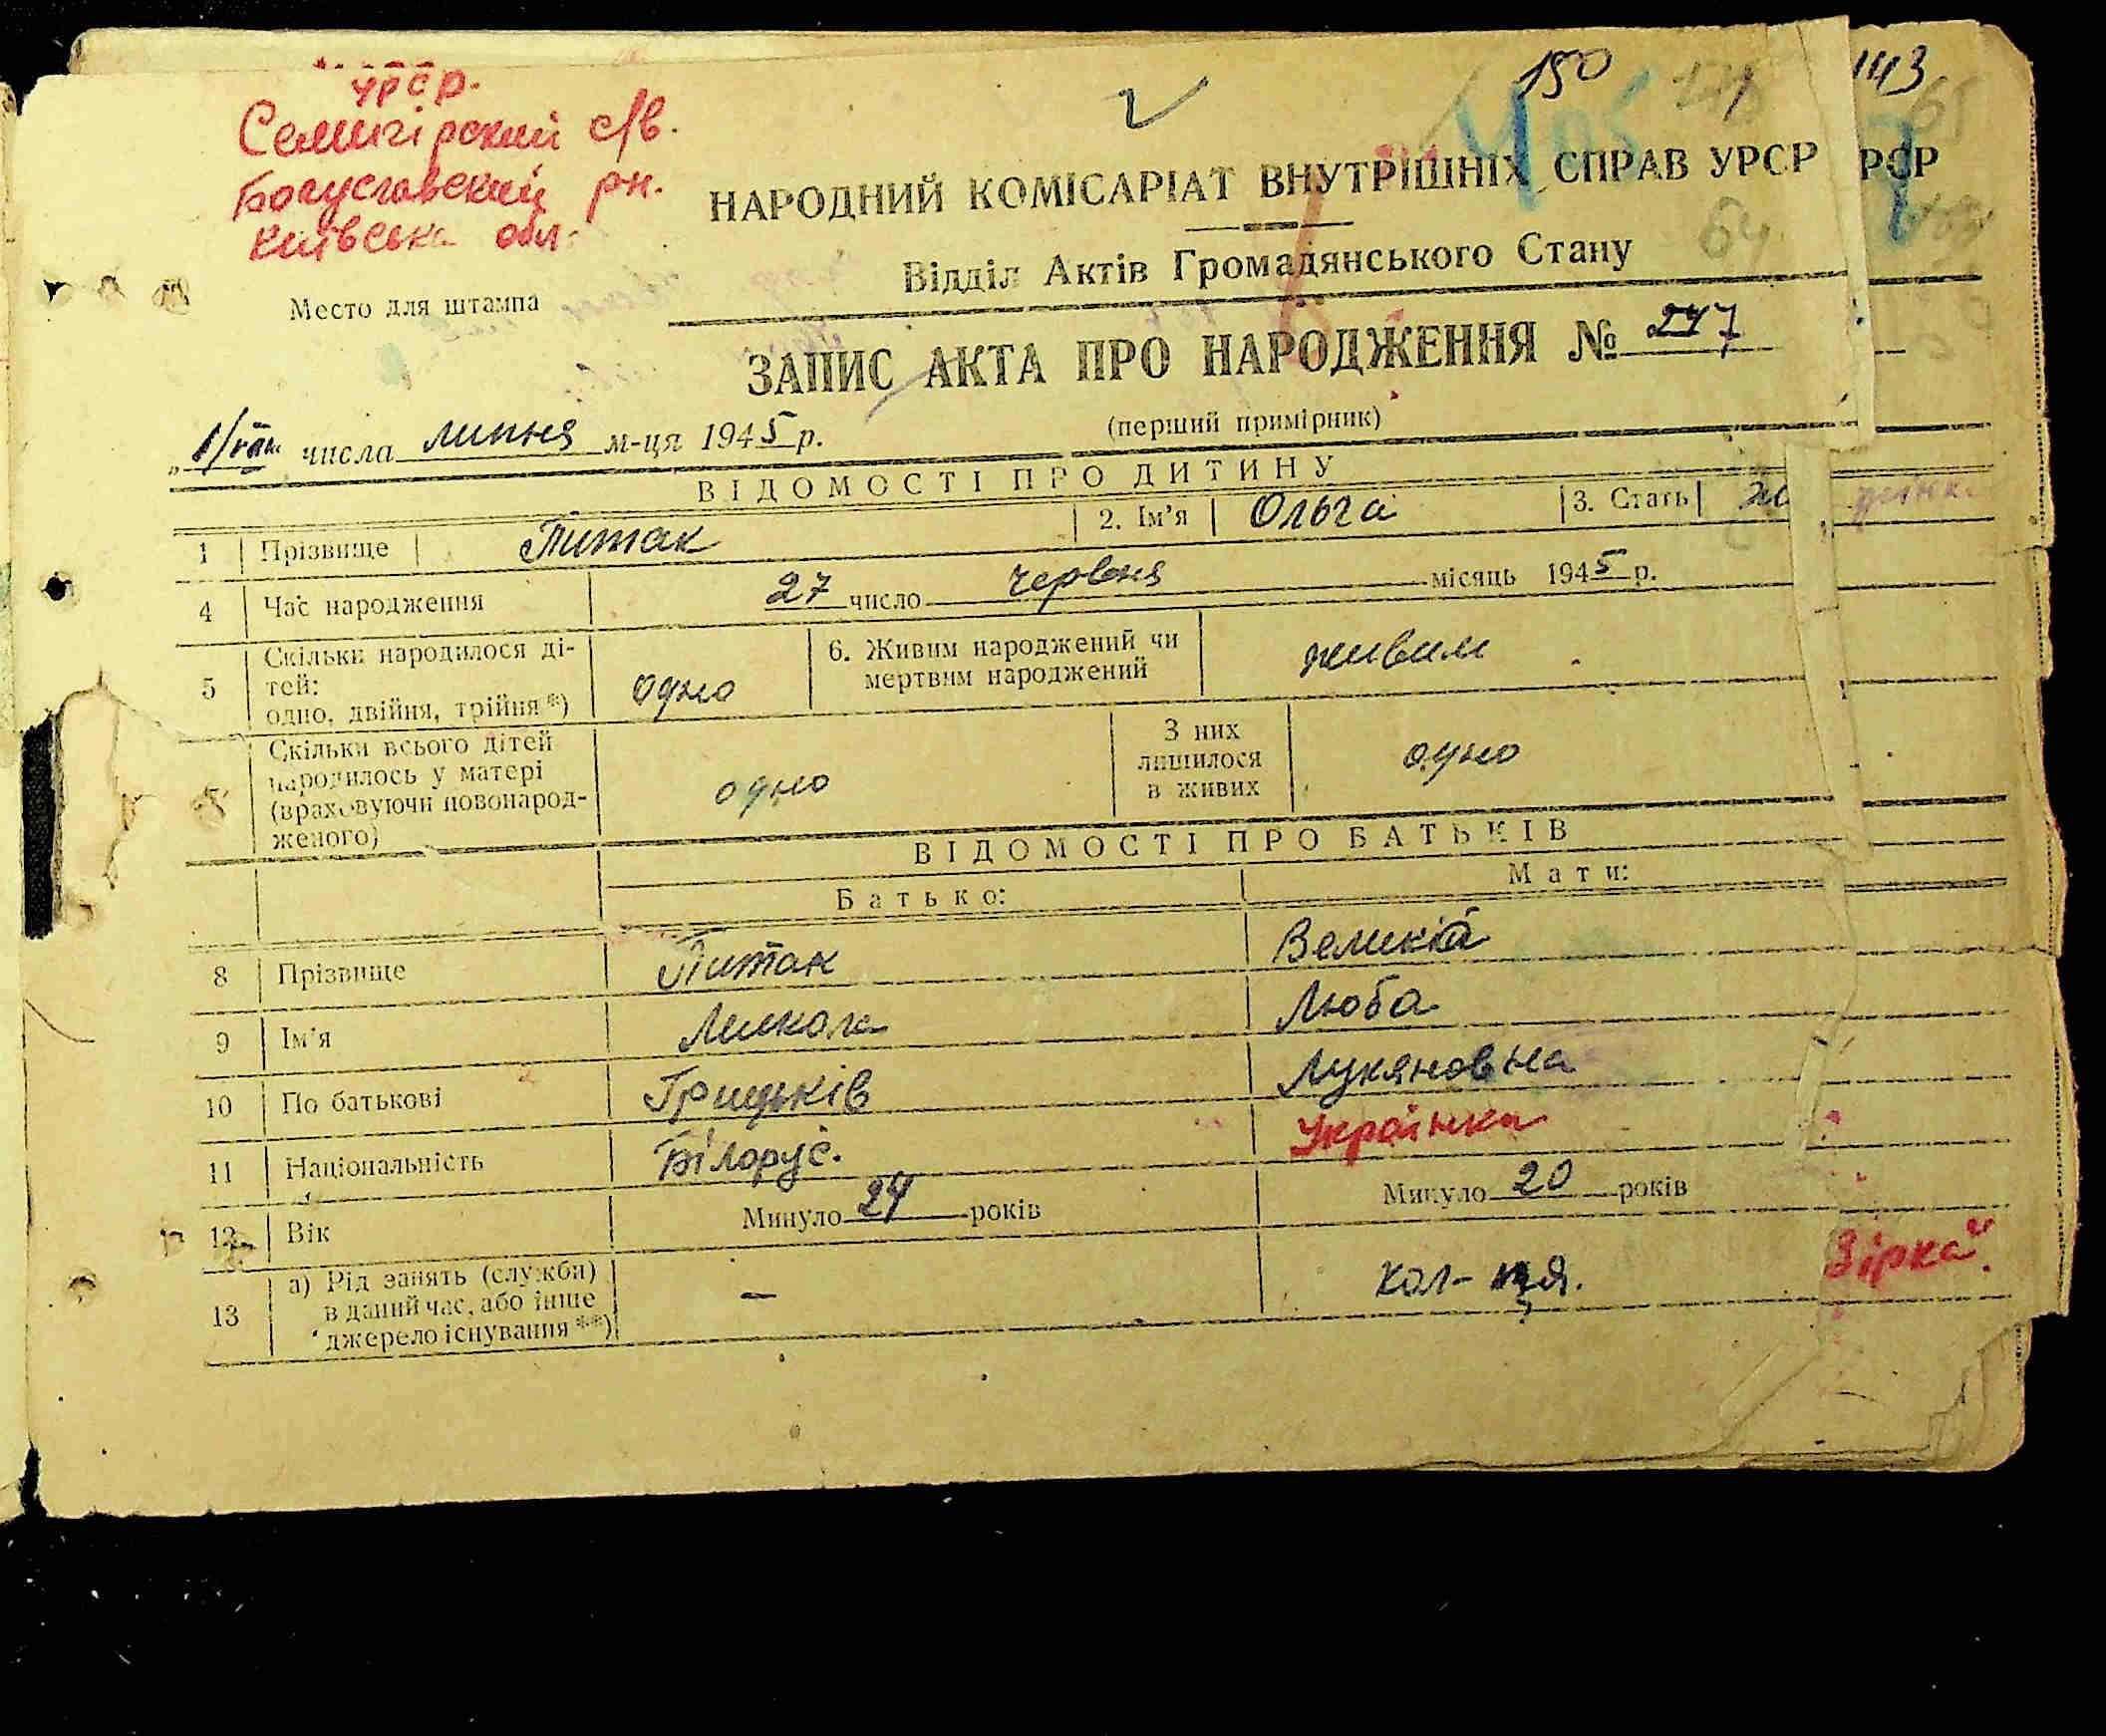 урср.
Семигірский с/в.
Богуславский рн.
Київська обл.
Место для штампа
150 143
НАРОДНИЙ КОМІСАРІАТ ВНУТРІШНІХ СПРАВ УРСР РСР
Відділ Актів Громадянського Стану
ЗАПИС АКТА ПРО НАРОДЖЕННЯ № 247
числа липня м-ця 1945 р.
(перший примірник)
ВІДОМОСТІ ПРО ДИТИНУ
1 Прізвище Питак 2. Ім'я Ольга 3. Стать
4 Час народження 27 число червня місяць 1945 р.
5 Скільки народилося ді-
тей:
одно, двійня, трійня*) одно
6. Живим народжений чи
мертвим народжений живим
Скільки всього дітей
народилось у матері
(враховуючи новонарод-
женого) одно
З них
лишилося
в живих одно
ВІДОМОСТІ ПРО БАТЬКІВ
Батько: Мати:
8 Прізвище Питак Велика
9 Ім'я Микола Люба
10 По батькові Грицьків Лукяновна
11 Національність Білорус. Українка
12 Вік Минуло 24 років Минуло 20 років
13 а) Рід занять (служби)
в даний час, або інше
джерело існування**) — кол-ця.
Зірка"